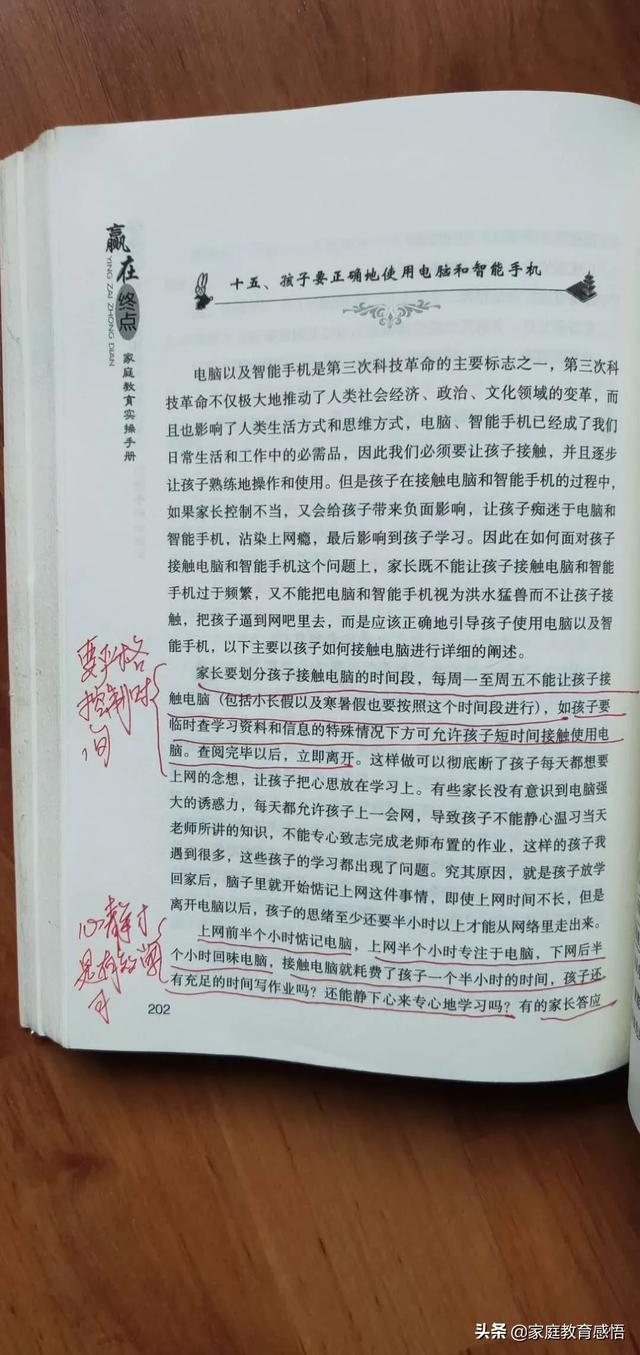 赢在终点
YING ZAI ZHONG DIAN
家庭教育实操手册
十五、孩子要正确地使用电脑和智能手机
电脑以及智能手机是第三次科技革命的主要标志之一，第三次科
技革命不仅极大地推动了人类社会经济、政治、文化领域的变革，而
且也影响了人类生活方式和思维方式，电脑、智能手机已经成了我们
日常生活和工作中的必需品，因此我们必须要让孩子接触，并且逐步
让孩子熟练地操作和使用。但是孩子在接触电脑和智能手机的过程中，
如果家长控制不当，又会给孩子带来负面影响，让孩子痴迷于电脑和
智能手机，沾染上网瘾，最后影响到孩子学习。因此在如何面对孩子
接触电脑和智能手机这个问题上，家长既不能让孩子接触电脑和智能
手机过于频繁，又不能把电脑和智能手机视为洪水猛兽而不让孩子接
触，把孩子逼到网吧里去，而是应该正确地引导孩子使用电脑以及智
能手机，以下主要以孩子如何接触电脑进行详细的阐述。
要严格
控制时
间
家长要划分孩子接触电脑的时间段，每周一至周五不能让孩子接
触电脑（包括小长假以及寒暑假也要按照这个时间段进行），如孩子要
临时查学习资料和信息的特殊情况下方可允许孩子短时间接触使用电
脑。查阅完毕以后，立即离开。这样做可以彻底断了孩子每天都想要
上网的念想，让孩子把心思放在学习上。有些家长没有意识到电脑强
大的诱惑力，每天都允许孩子上一会网，导致孩子不能静心温习当天
老师所讲的知识，不能专心致志完成老师布置的作业，这样的孩子我
遇到很多，这些孩子的学习都出现了问题。究其原因，就是孩子放学
回家后，脑子里就开始惦记上网这件事情，即使上网时间不长，但是
离开电脑以后，孩子的思绪至少还要半小时以上才能从网络里走出来。
心静才
上网前半个小时惦记电脑，上网半个小时专注于电脑，下网后半
个小时回味电脑，接触电脑就耗费了孩子一个半小时的时间，孩子还
有充足的时间写作业吗？还能静下心来专心地学习吗？有的家长答应
202
头条 @家庭教育感悟